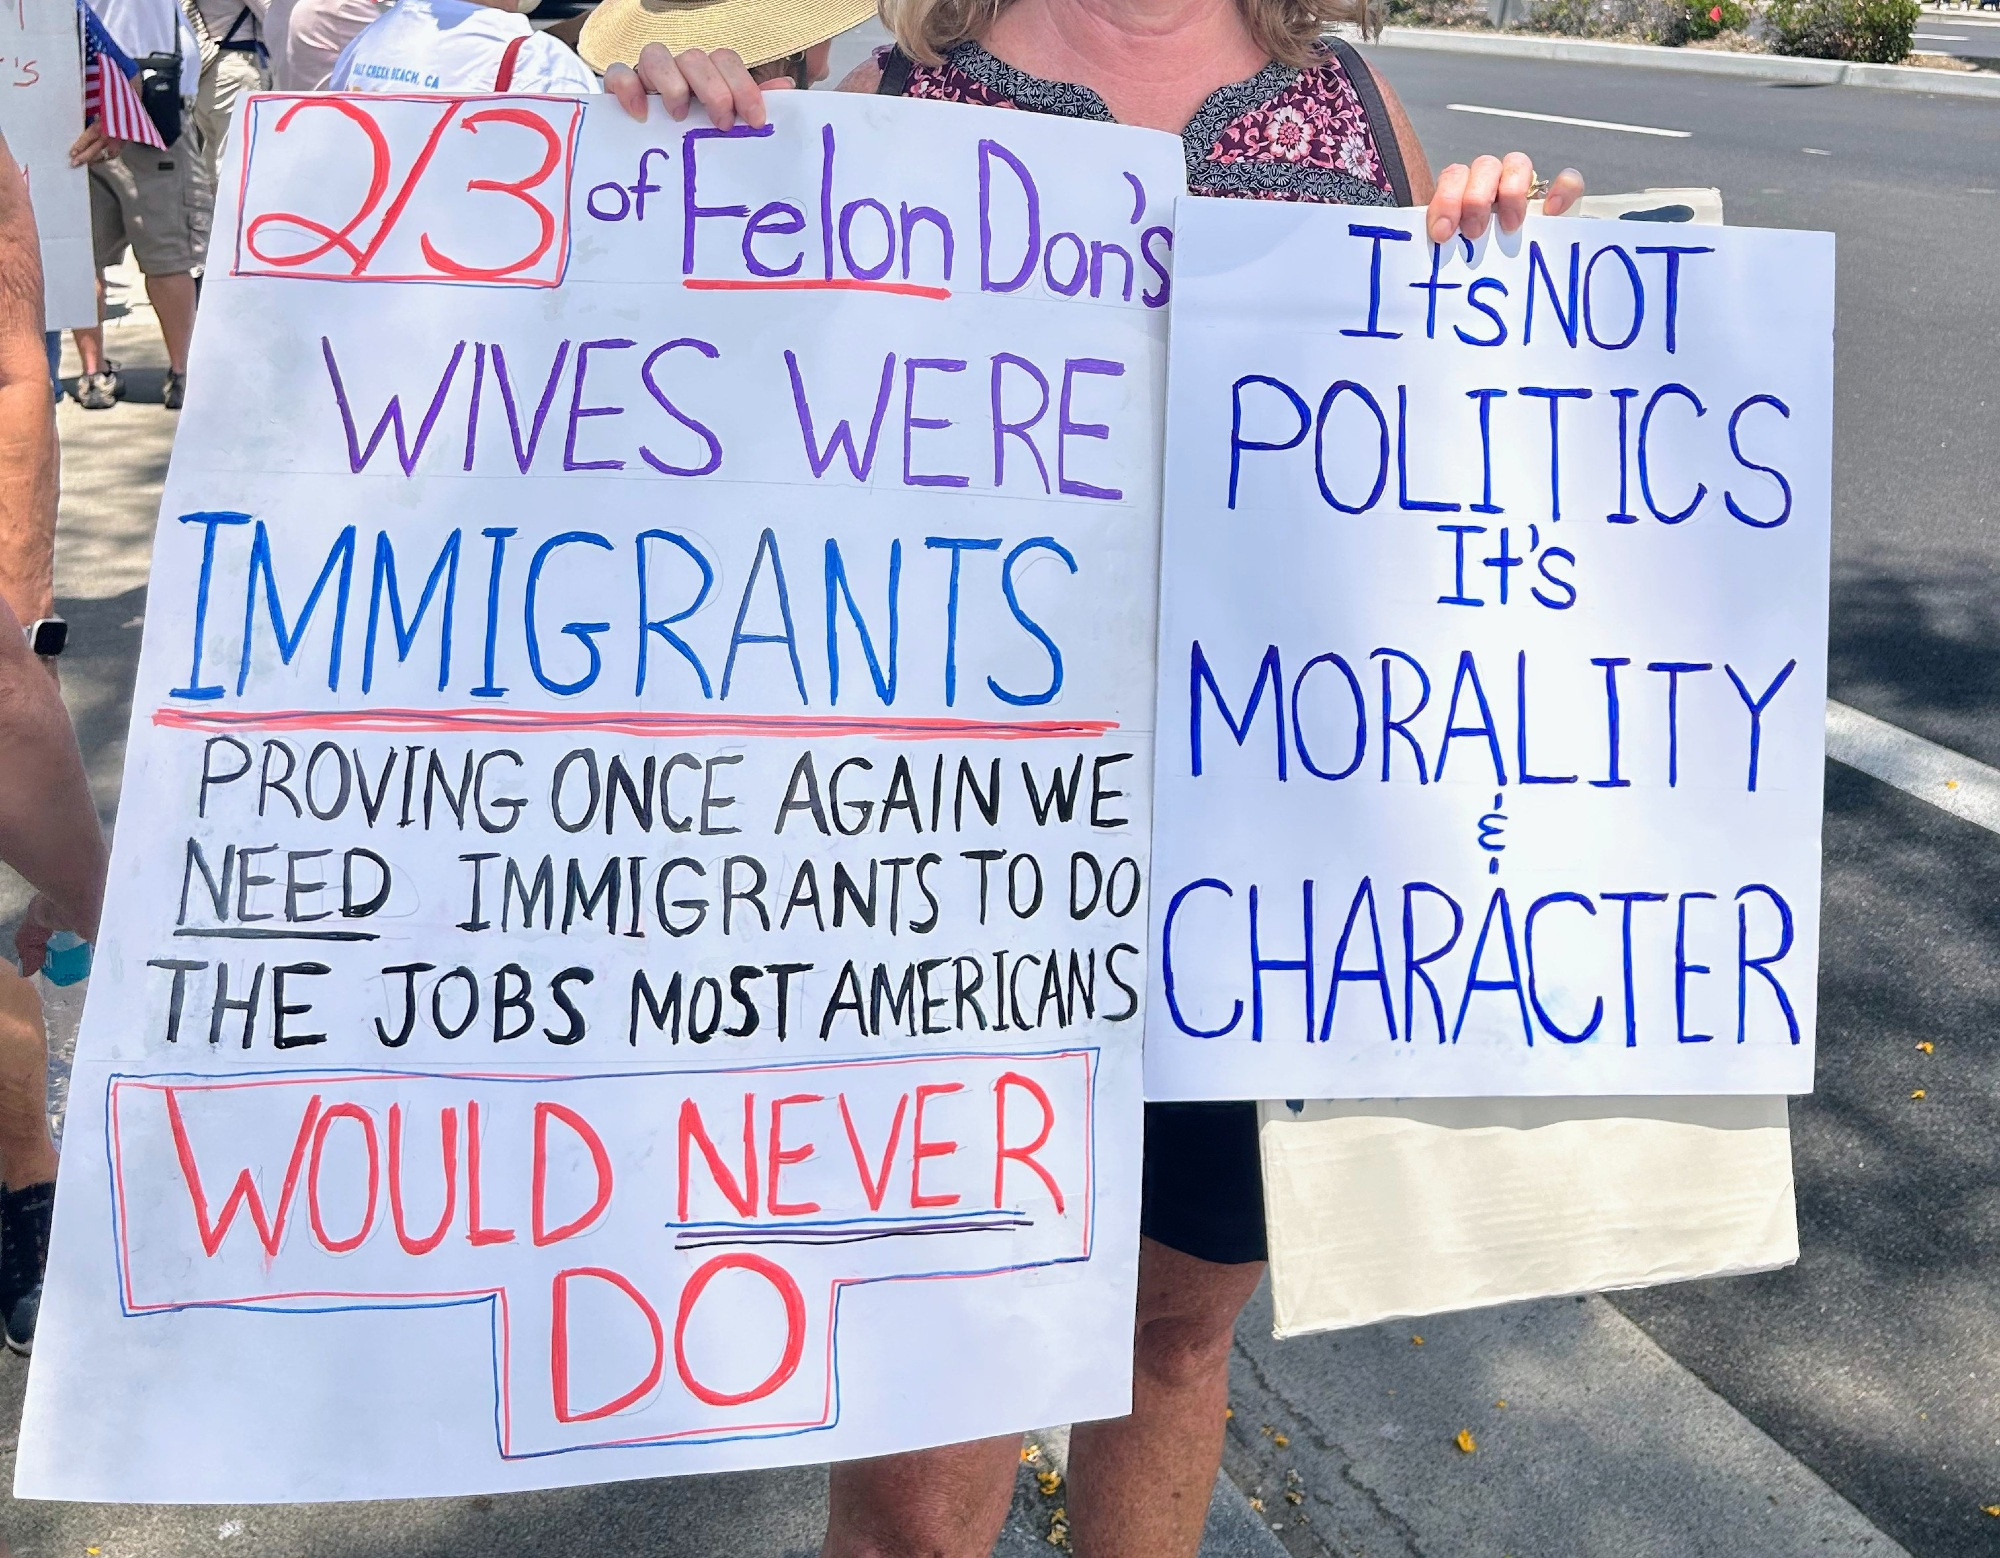 2/3 of Felon Don's
WIVES WERE
IMMIGRANTS
PROVING ONCE AGAIN WE
NEED IMMIGRANTS TO DO
THE JOBS MOST AMERICANS
WOULD NEVER
DO
It's NOT
POLITICS
It's
MORALITY
&
CHARACTER
CREEK BEACH, CA
's